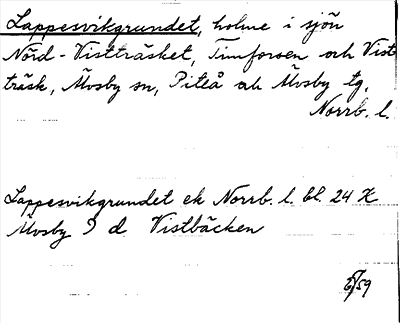 Lappesvikgrundet, holme i sjön
Nörd-Vistträsket, Timforsen och Vist
träsk, Älvsby sn, Piteå och Älvsby tg.
Norrb. l.
Lappesvikgrundet ek Norrb. l. bl. 24 K
Älvsby 9 d Vistbäcken
/59